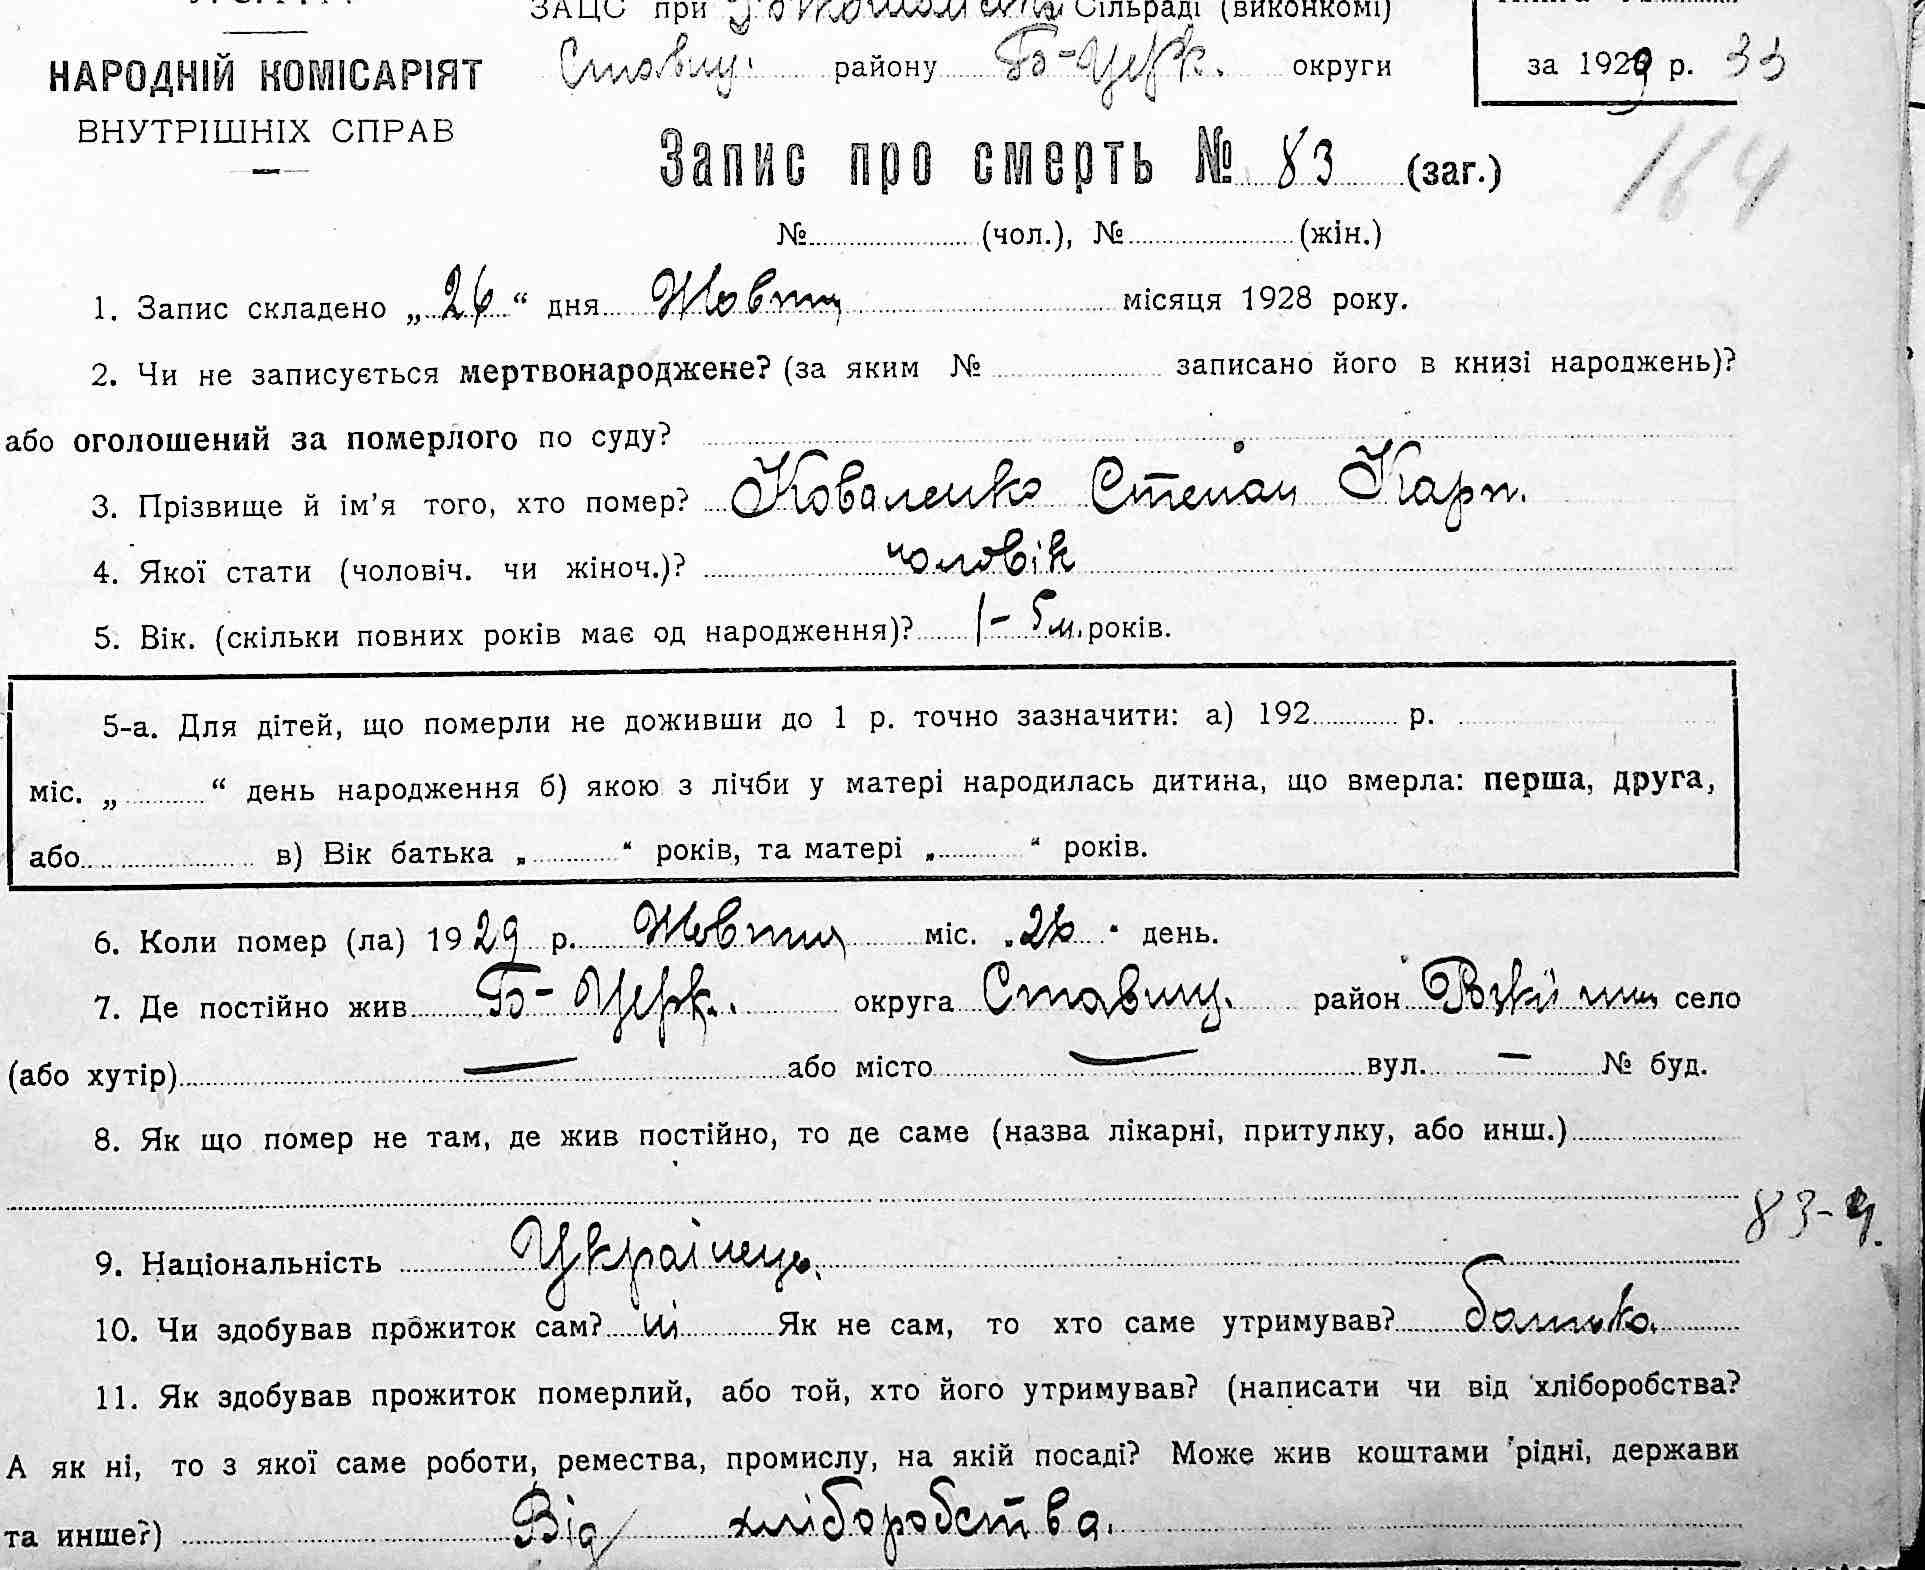 ЗАЦС при Сільраді (виконкомі)
НАРОДНІЙ КОМІСАРІЯТ
ВНУТРІШНІХ СПРАВ
Ставищ. району Б-Церк. округи
за 1929 р. 33
Запис про смерть № 83 (заг.)
164
№ (чол.), № (жін.)
1. Запис складено „26“ дня Жовтня місяця 1928 року.
2. Чи не записується мертвонароджене? (за яким № записано його в книзі народжень)?
або оголошений за померлого по суду?
3. Прізвище й ім'я того, хто помер? Коваленко Степан Карп.
4. Якої стати (чоловіч. чи жіноч.)? чоловік
5. Вік. (скільки повних років має од народження)? 1 - 5 м. років.
5-а. Для дітей, що померли не доживши до 1 р. точно зазначити: а) 192 р.
міс. „ “ день народження б) якою з лічби у матері народилась дитина, що вмерла: перша, друга,
або в) Вік батька „ “ років, та матері „ “ років.
6. Коли помер (ла) 1929 р. Жовтня міс. „26“ день.
7. Де постійно жив Б-Церк. округа Ставищ. район село
(або хутір) — або місто — вул. — № буд.
8. Як що помер не там, де жив постійно, то де саме (назва лікарні, притулку, або инш.)
83-
9. Національність Українець.
10. Чи здобував прожиток сам? ні Як не сам, то хто саме утримував? батько.
11. Як здобував прожиток померлий, або той, хто його утримував? (написати чи від хліборобства?
А як ні, то з якої саме роботи, ремества, промислу, на якій посаді? Може жив коштами рідні, держави
та инше?) Від хліборобства.